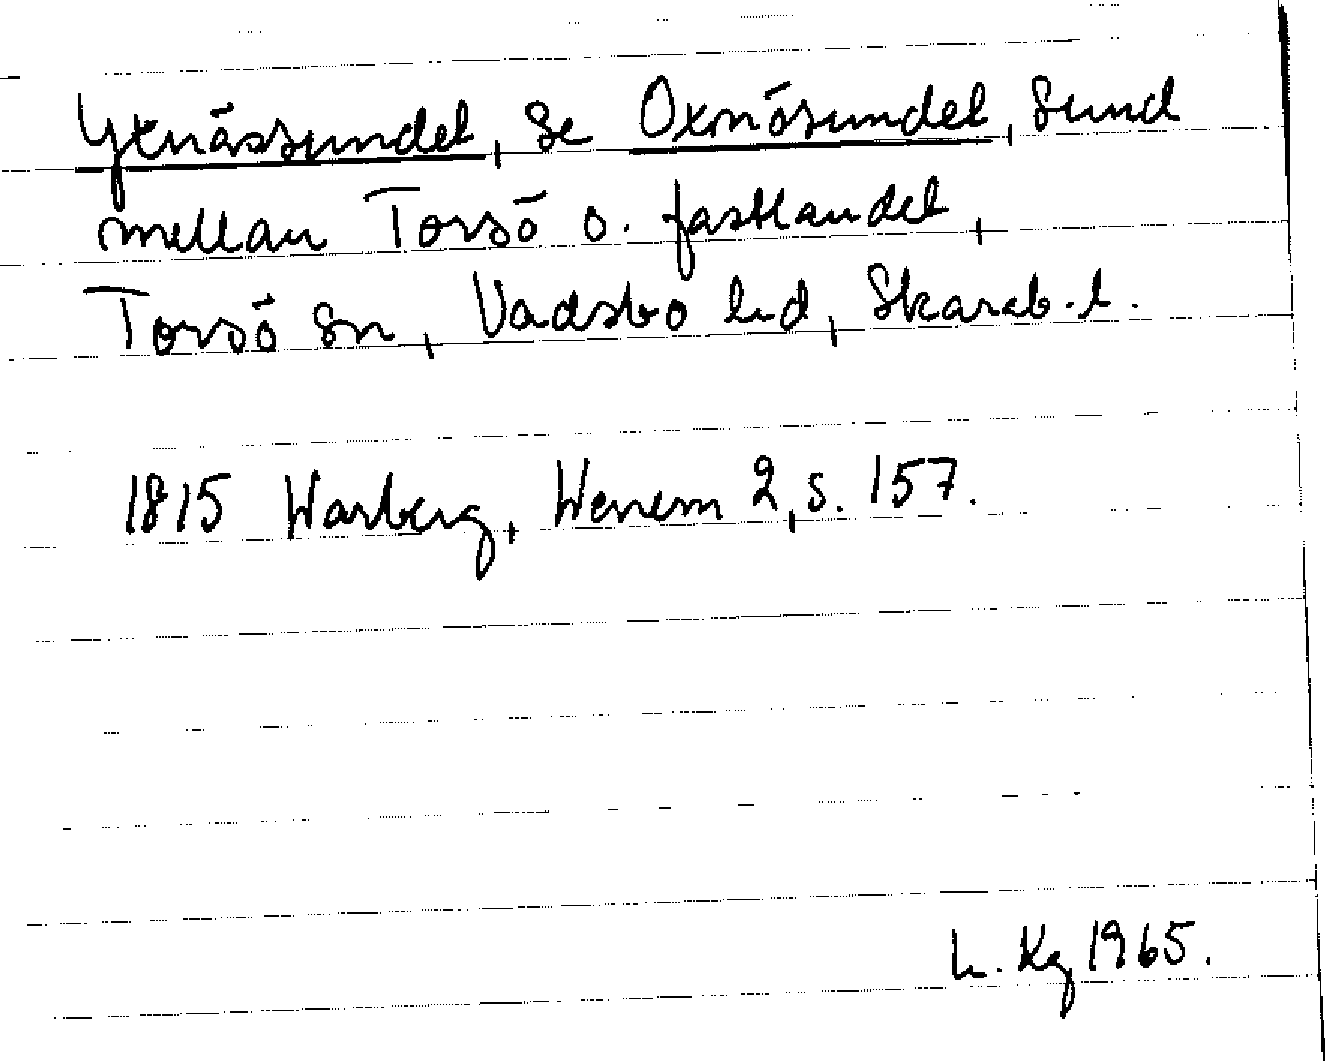 Yxnässundet, se Oxnösundet, sund
mellan Torsö o. fastlandet,
Torsö sn, Vadsbo hd, Skarab. l.
1815 Warberg, Wenern 2, s. 157.
L. Kg 1965.